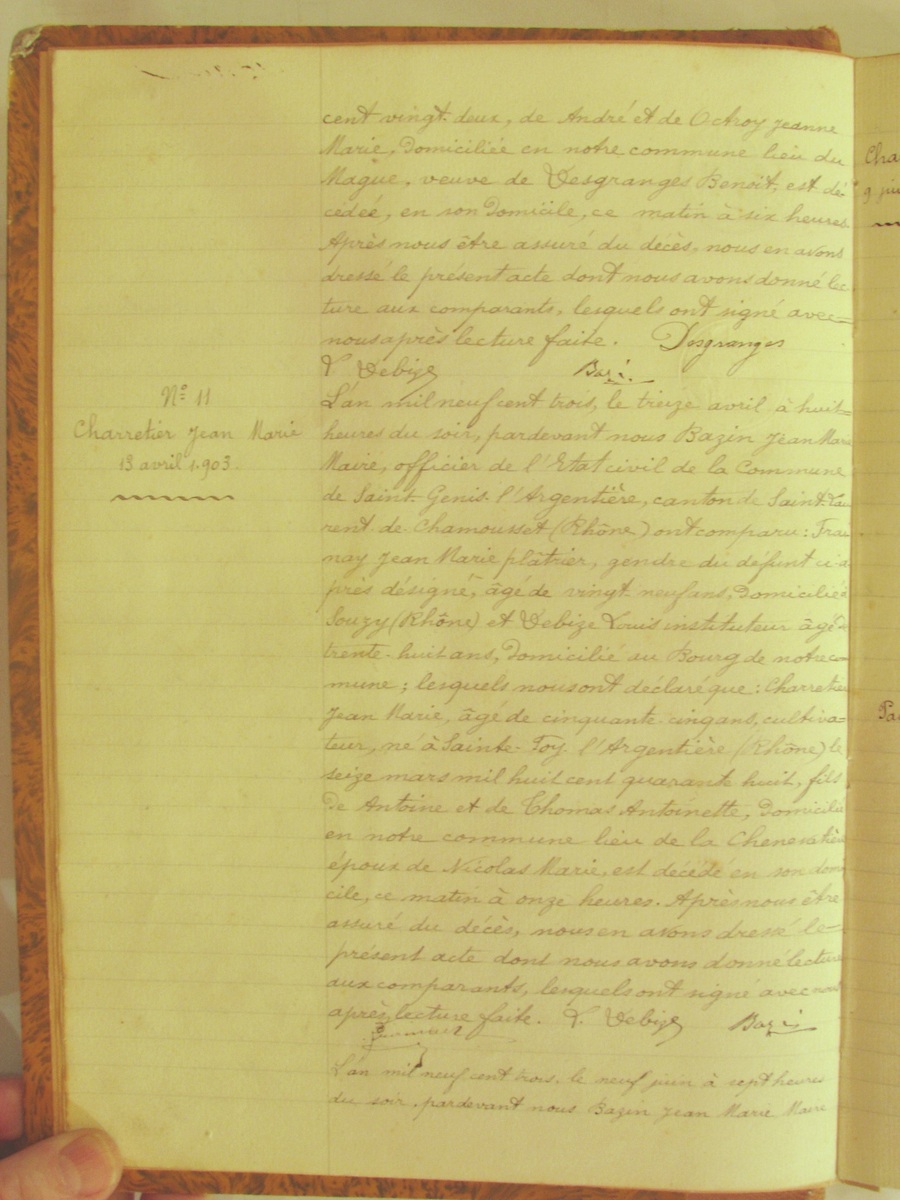 cent vingt-deux, de André et de Octroy Jeanne
Marie, Domiciliée en notre commune lieu du
Mague, veuve de Desgranges Benoit, est dé-
cédée, en son Domicile, ce matin à six heures.
Après nous être assuré du décès, nous en avons
dressé le présent acte dont nous avons donné lec
ture aux comparants, lesquels ont signé avec
nous après lecture faite. Desgranges
L Debize
N° 11
Charretier Jean Marie
13 avril 1.903.
L'an mil neuf cent trois, le treize avril à huit
heures du soir, pardevant nous Bazin Jean Marie
Maire, officier de l'Etat civil de la Commune
de Saint-Genis-l'Argentière, canton de Saint-Lau
rent de Chamousset (Rhône) ont comparu : Frau
nay Jean Marie plâtrier, gendre du défunt ci-a
près désigné, âgé de vingt neuf ans, Domicilié à
Souzy (Rhône) et Debize Louis instituteur âgé de
trente-huit ans, Domicilié au Bourg de notre com
mune ; lesquels nous ont déclaré que : Charretier
Jean Marie, âgé de cinquante-cinq ans, cultiva=
teur, né à Sainte-Foy l'Argentière (Rhône) le
seize mars mil huit cent quarante huit, fils
De Antoine et de Thomas Antoinette, Domicilié
en notre commune lieu de la Chenevatière
époux de Nicolas Marie, est décédé en son domi
cile, ce matin à onze heures. Après nous être
assuré du décès, nous en avons dressé le
présent acte dont nous avons donné lecture
aux comparants, lesquels ont signé avec nous
après lecture faite. L. Debize
L'an mil neuf cent trois, le neuf juin à sept heures
du soir, pardevant nous Bazin Jean Marie Maire
Cha
9 jui